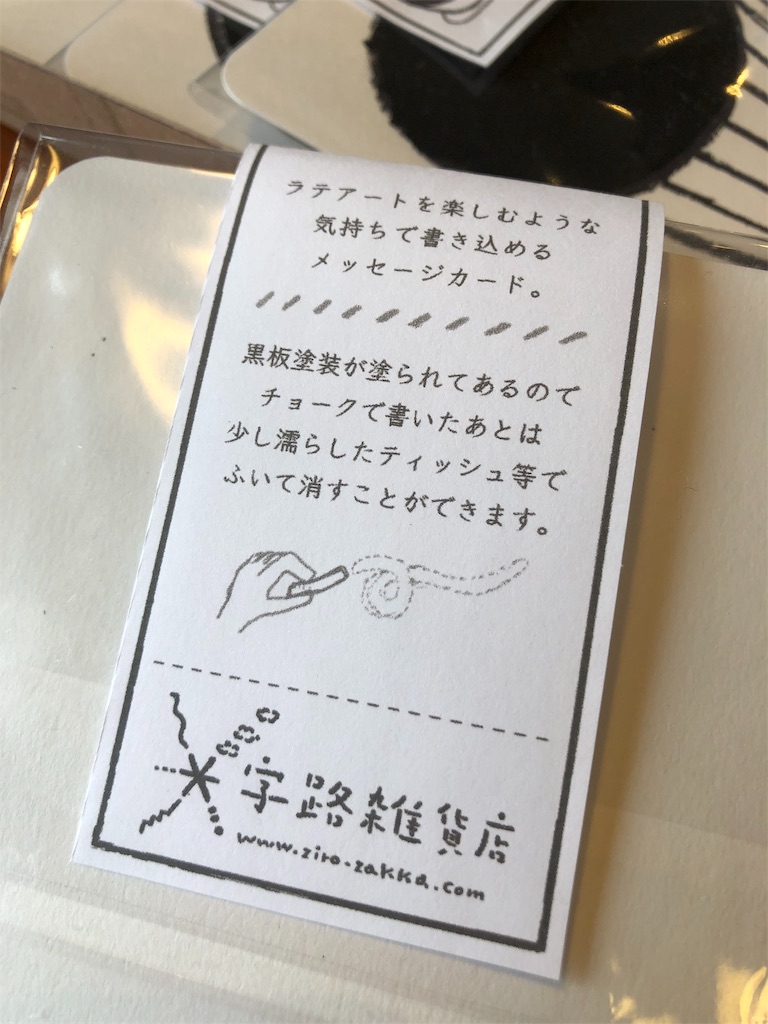 ラテアートを楽しむような
気持ちで書き込める
メッセージカード。
黒板塗装が塗られてあるので
チョークで書いたあとは
少し濡らしたティッシュ等で
ふいて消すことができます。
字路雑貨店
www.ziro-zakka.com